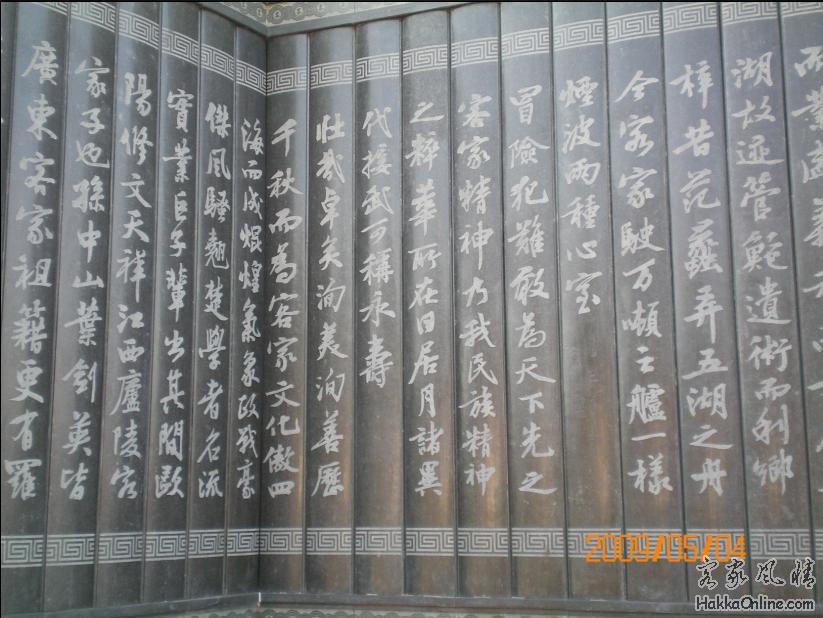 而業
湖故迹管範遺術而利鄉
梓昔范蠡弄五湖之舟
今客家駛万噸之艫一樣
煙波兩種心室
冒險犯難敢為天下先之
客家精神乃我民族精神
之粹華所在日居月諸異
代接武可稱永壽
壯哉卓矣洵美洵善歷
千秋而為客家文化傲四
海而成焜煌氣象政戰豪
傑風騷翹楚學者名流
實業巨子輩出其間歐
陽修文天祥江西廬陵客
家子也孫中山葉劍英皆
廣東客家祖籍更有羅
2009/05/04
客家风情
HakkaOnline.com